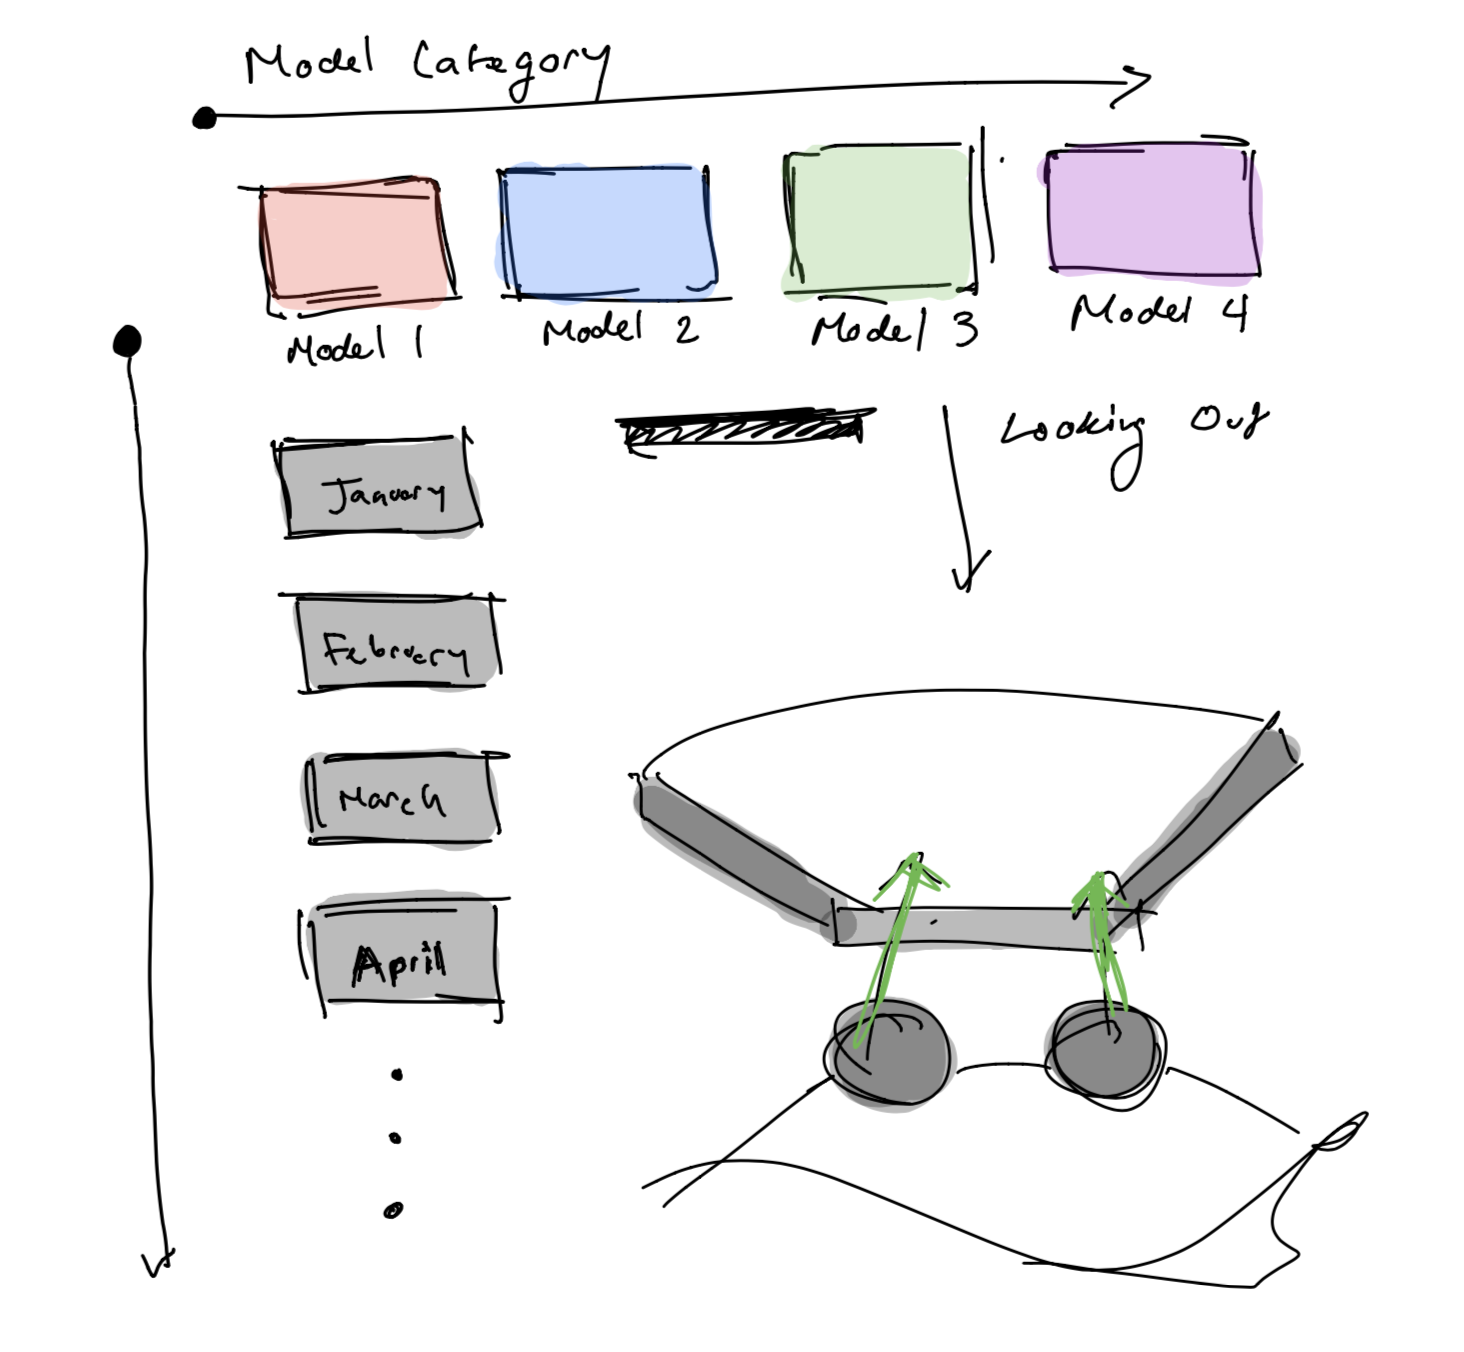 Model Category
Model 1
Model 2
Model 3
Model 4
Looking Out
January
February
March
April